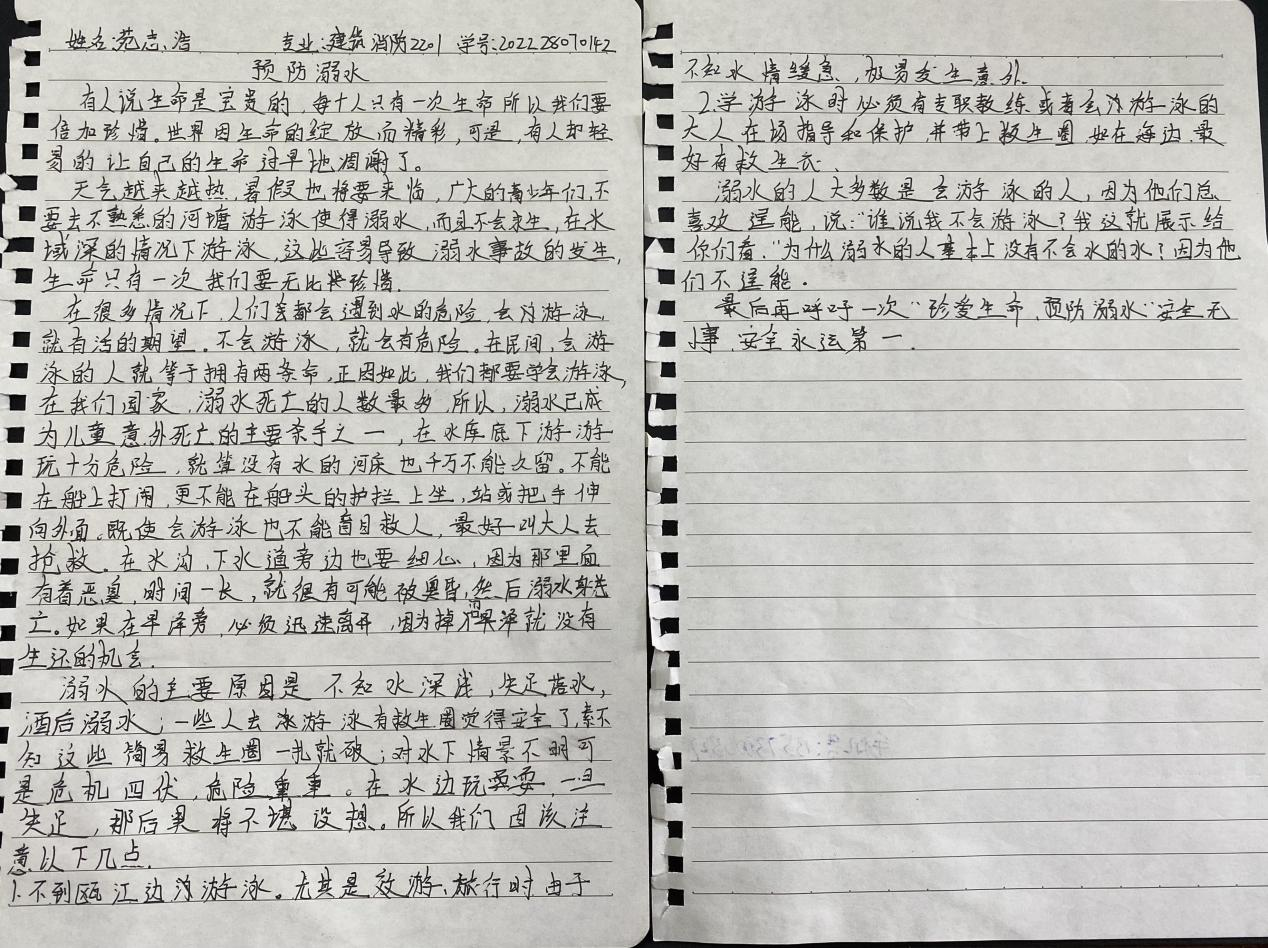 姓名:范志浩 专业:建筑消防2201 学号:202228070142
预防溺水
有人说生命是宝贵的，每个人只有一次生命所以我们要
倍加珍惜。世界因生命的绽放而精彩，可是，有人却轻
易的让自己的生命过早地凋谢了。
天气越来越热，暑假也将要来临，广大的青少年们，不
要去不熟悉的河塘游泳使得溺水，而且不会求生，在水
域深的情况下游泳，这些容易导致溺水事故的发生，
生命只有一次我们要无比珍惜.
在很多情况下，人们都会遇到水的危险，会游泳，
就有活的期望。不会游泳，就会有危险。在民间，会游
泳的人就等于拥有两条命，正因如此，我们都要学会游泳，
在我们国家，溺水死亡的人数最多，所以，溺水已成
为儿童意外死亡的主要杀手之一，在水库底下游游
玩十分危险，就算没有水的河床也千万不能久留。不能
在船上打闹，更不能在船头的护拦上坐，站或把手伸
向外面。既使会游泳也不能盲目救人，最好叫大人去
抢救。在水沟，下水道旁边也要细心，因为那里面
有着恶臭，时间一长，就很有可能被臭昏，然后溺水身
亡。如果在旁，必须迅速离开，因为掉沼泽就没有
生还的机会.
溺水的主要原因是不知水深浅，失足落水，
酒后溺水；一些人去游泳有救生圈觉得安全了，素不
知这些简易救生圈一扎就破；对水下情景不明可
是危机四伏，危险重重。在水边玩耍，一旦
失足，那后果将不堪设想。所以我们因该注
意以下几点.
1.不到瓯江边游泳。尤其是效游、旅行时由于
不知水情缓急，极易发生意外.
2.学游泳时必须有专职教练或者会游泳的
大人在场指导和保护并带上救生圈，如在海边最
好有救生衣.
溺水的人大多数是会游泳的人，因为他们总
喜欢逞能，说:"谁说我不会游泳？我这就展示给
你们看."为什么溺水的人基本上没有不会水的水？因为他
们不逞能.
最后再呼吁一次"珍爱生命，预防溺水"安全无
小事，安全永远第一.